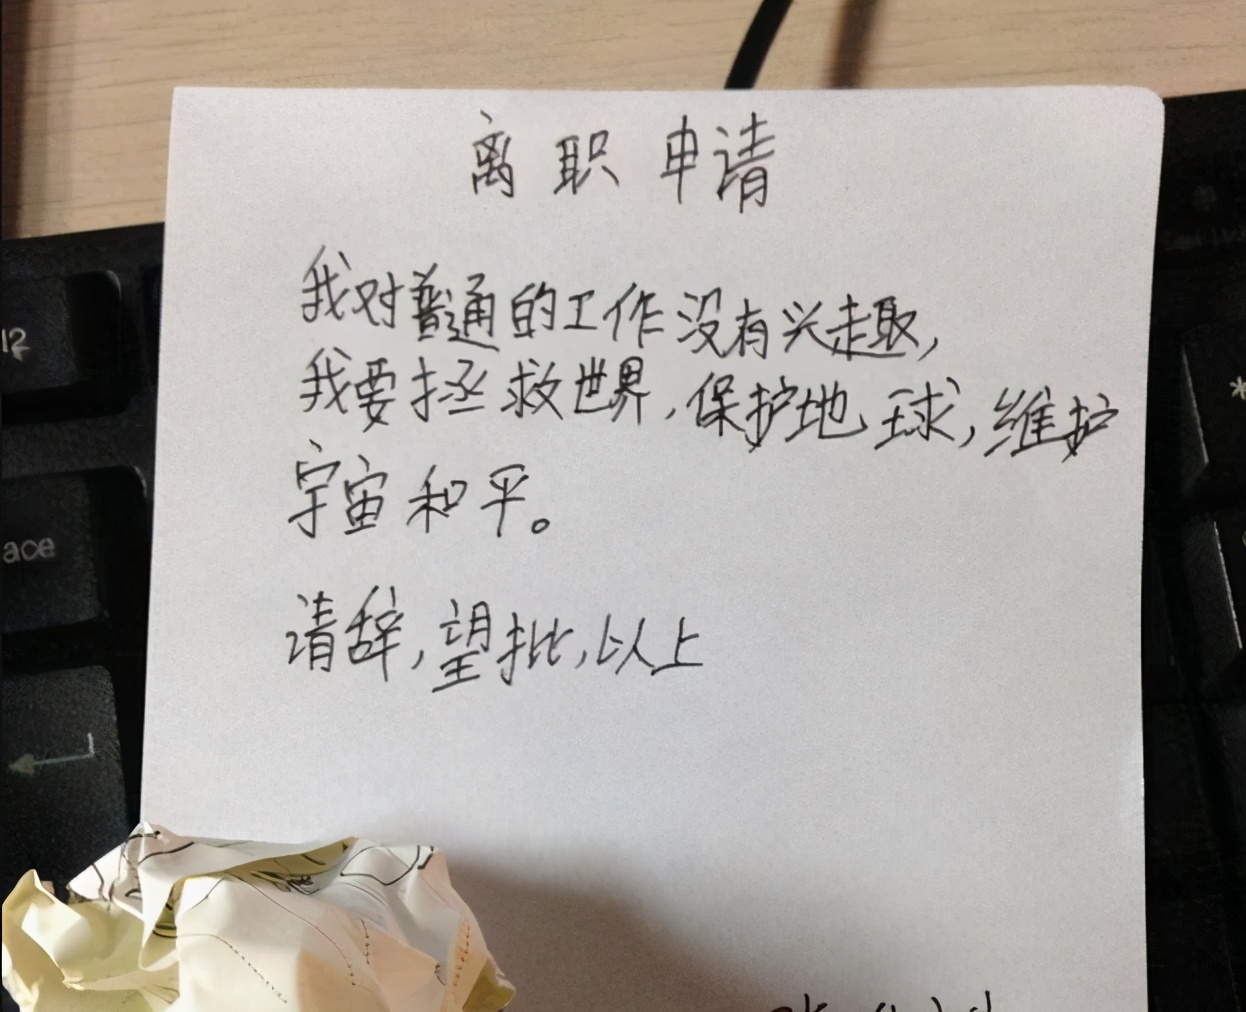 离职申请
我对普通的工作没有兴趣,
我要拯救世界,保护地球,维护
宇宙和平。
请辞,望批,以上
12
ace
*